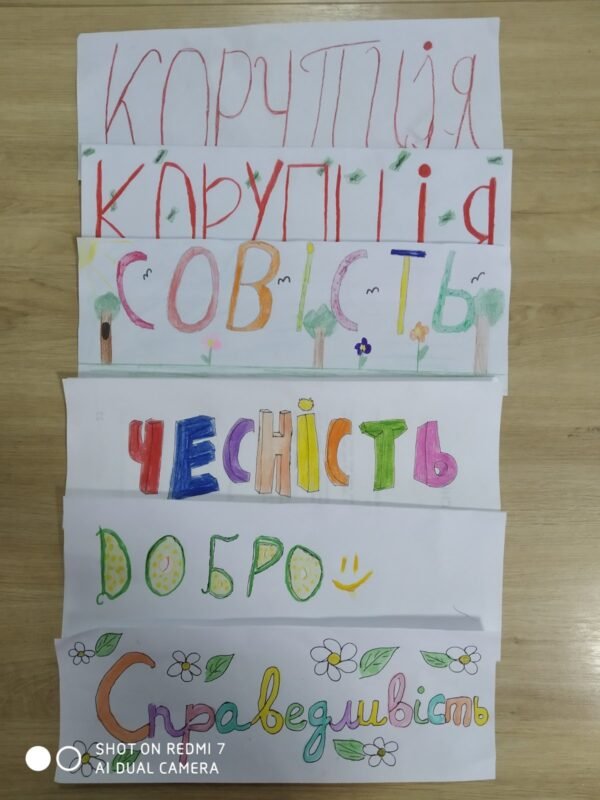 КОРУПЦІЯ
КОРУПЦІЯ
СОВІСТЬ
ЧЕСНІСТЬ
ДОБРО
Справедливість
SHOT ON REDMI 7
AI DUAL CAMERA